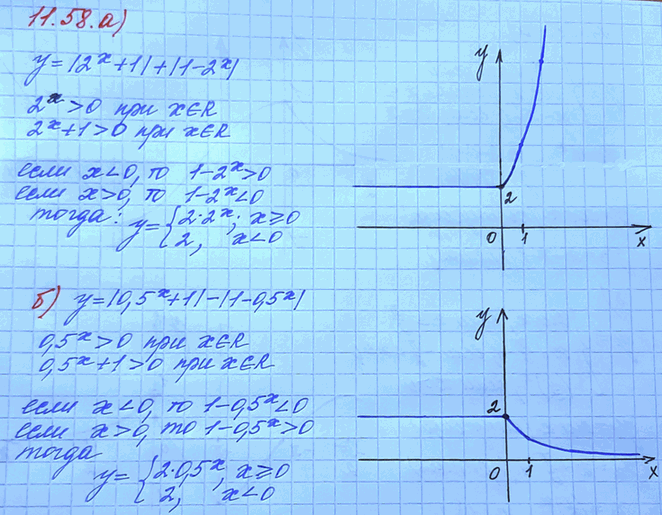 11.58. а)
y=|2^x+1|+|1-2^x|
2^x>0 при x∈R
2^x+1>0 при x∈R
если x<0, то 1-2^x>0
если x>0, то 1-2^x<0
тогда: y={2·2^x, x≥0
2, x<0
y
2
0 1 x
б) y=|0,5^x+1|-|1-0,5^x|
0,5^x>0 при x∈R
0,5^x+1>0 при x∈R
если x<0, то 1-0,5^x<0
если x>0, то 1-0,5^x>0
тогда
y={2·0,5^x, x≥0
2, x<0
y
2
0 1 x